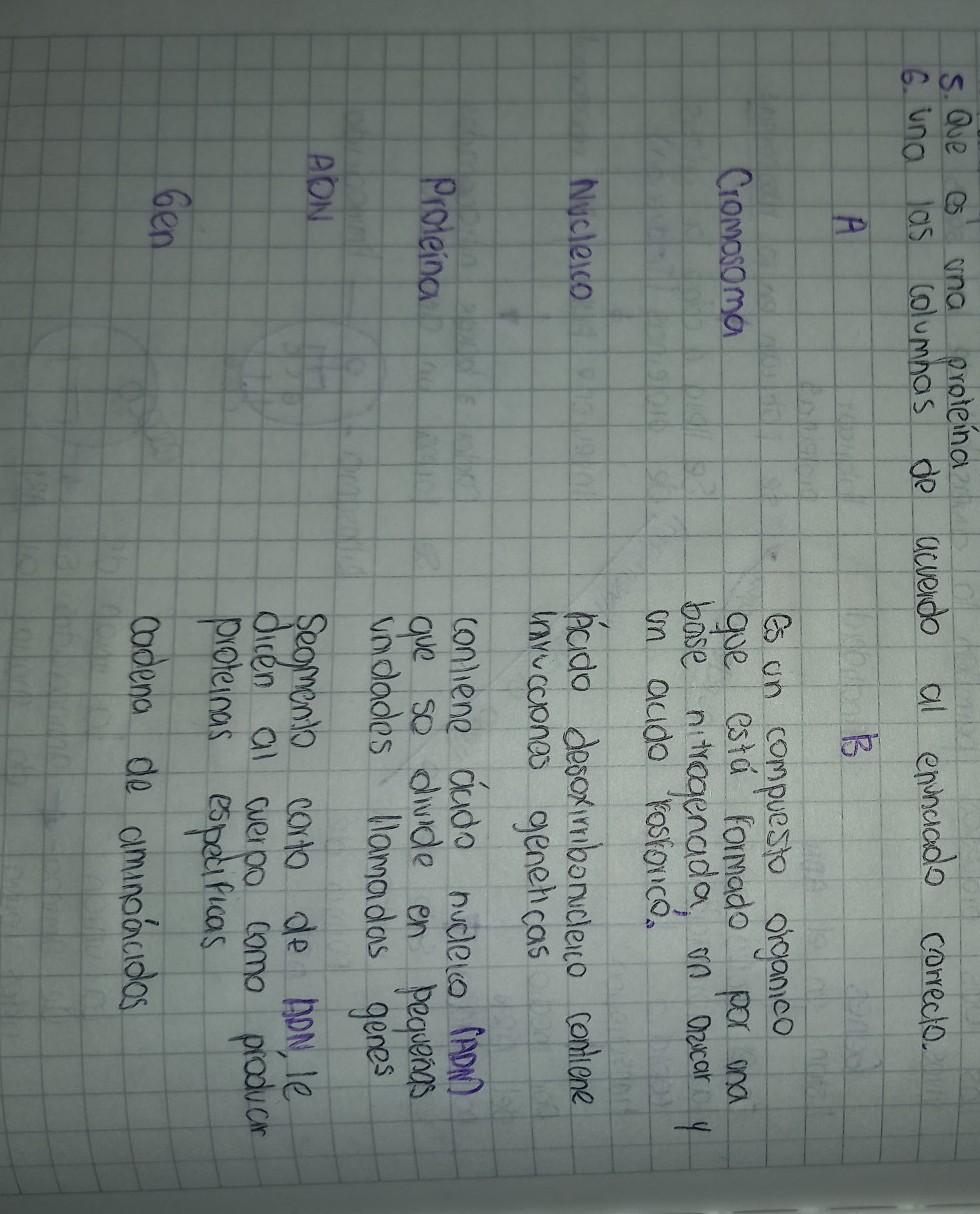 5. Que es una proteína
6. Una las columnas de acuerdo al enunciado correcto.
A B
Cromosoma
es un compuesto organico
que está formado por una
base nitrogenada, un azucar y
un acido fosforico.
Nucleico
Ácido desoxirribonucleico contiene
genéticas
Proteína
contiene ácido nucleico (ADN)
que se divide en pequeñas
unidades llamadas genes
ADN
Segmento corto de ADN, le
dicen al cuerpo como producir
proteinas especificas
Gen
Cadena de aminoácidos